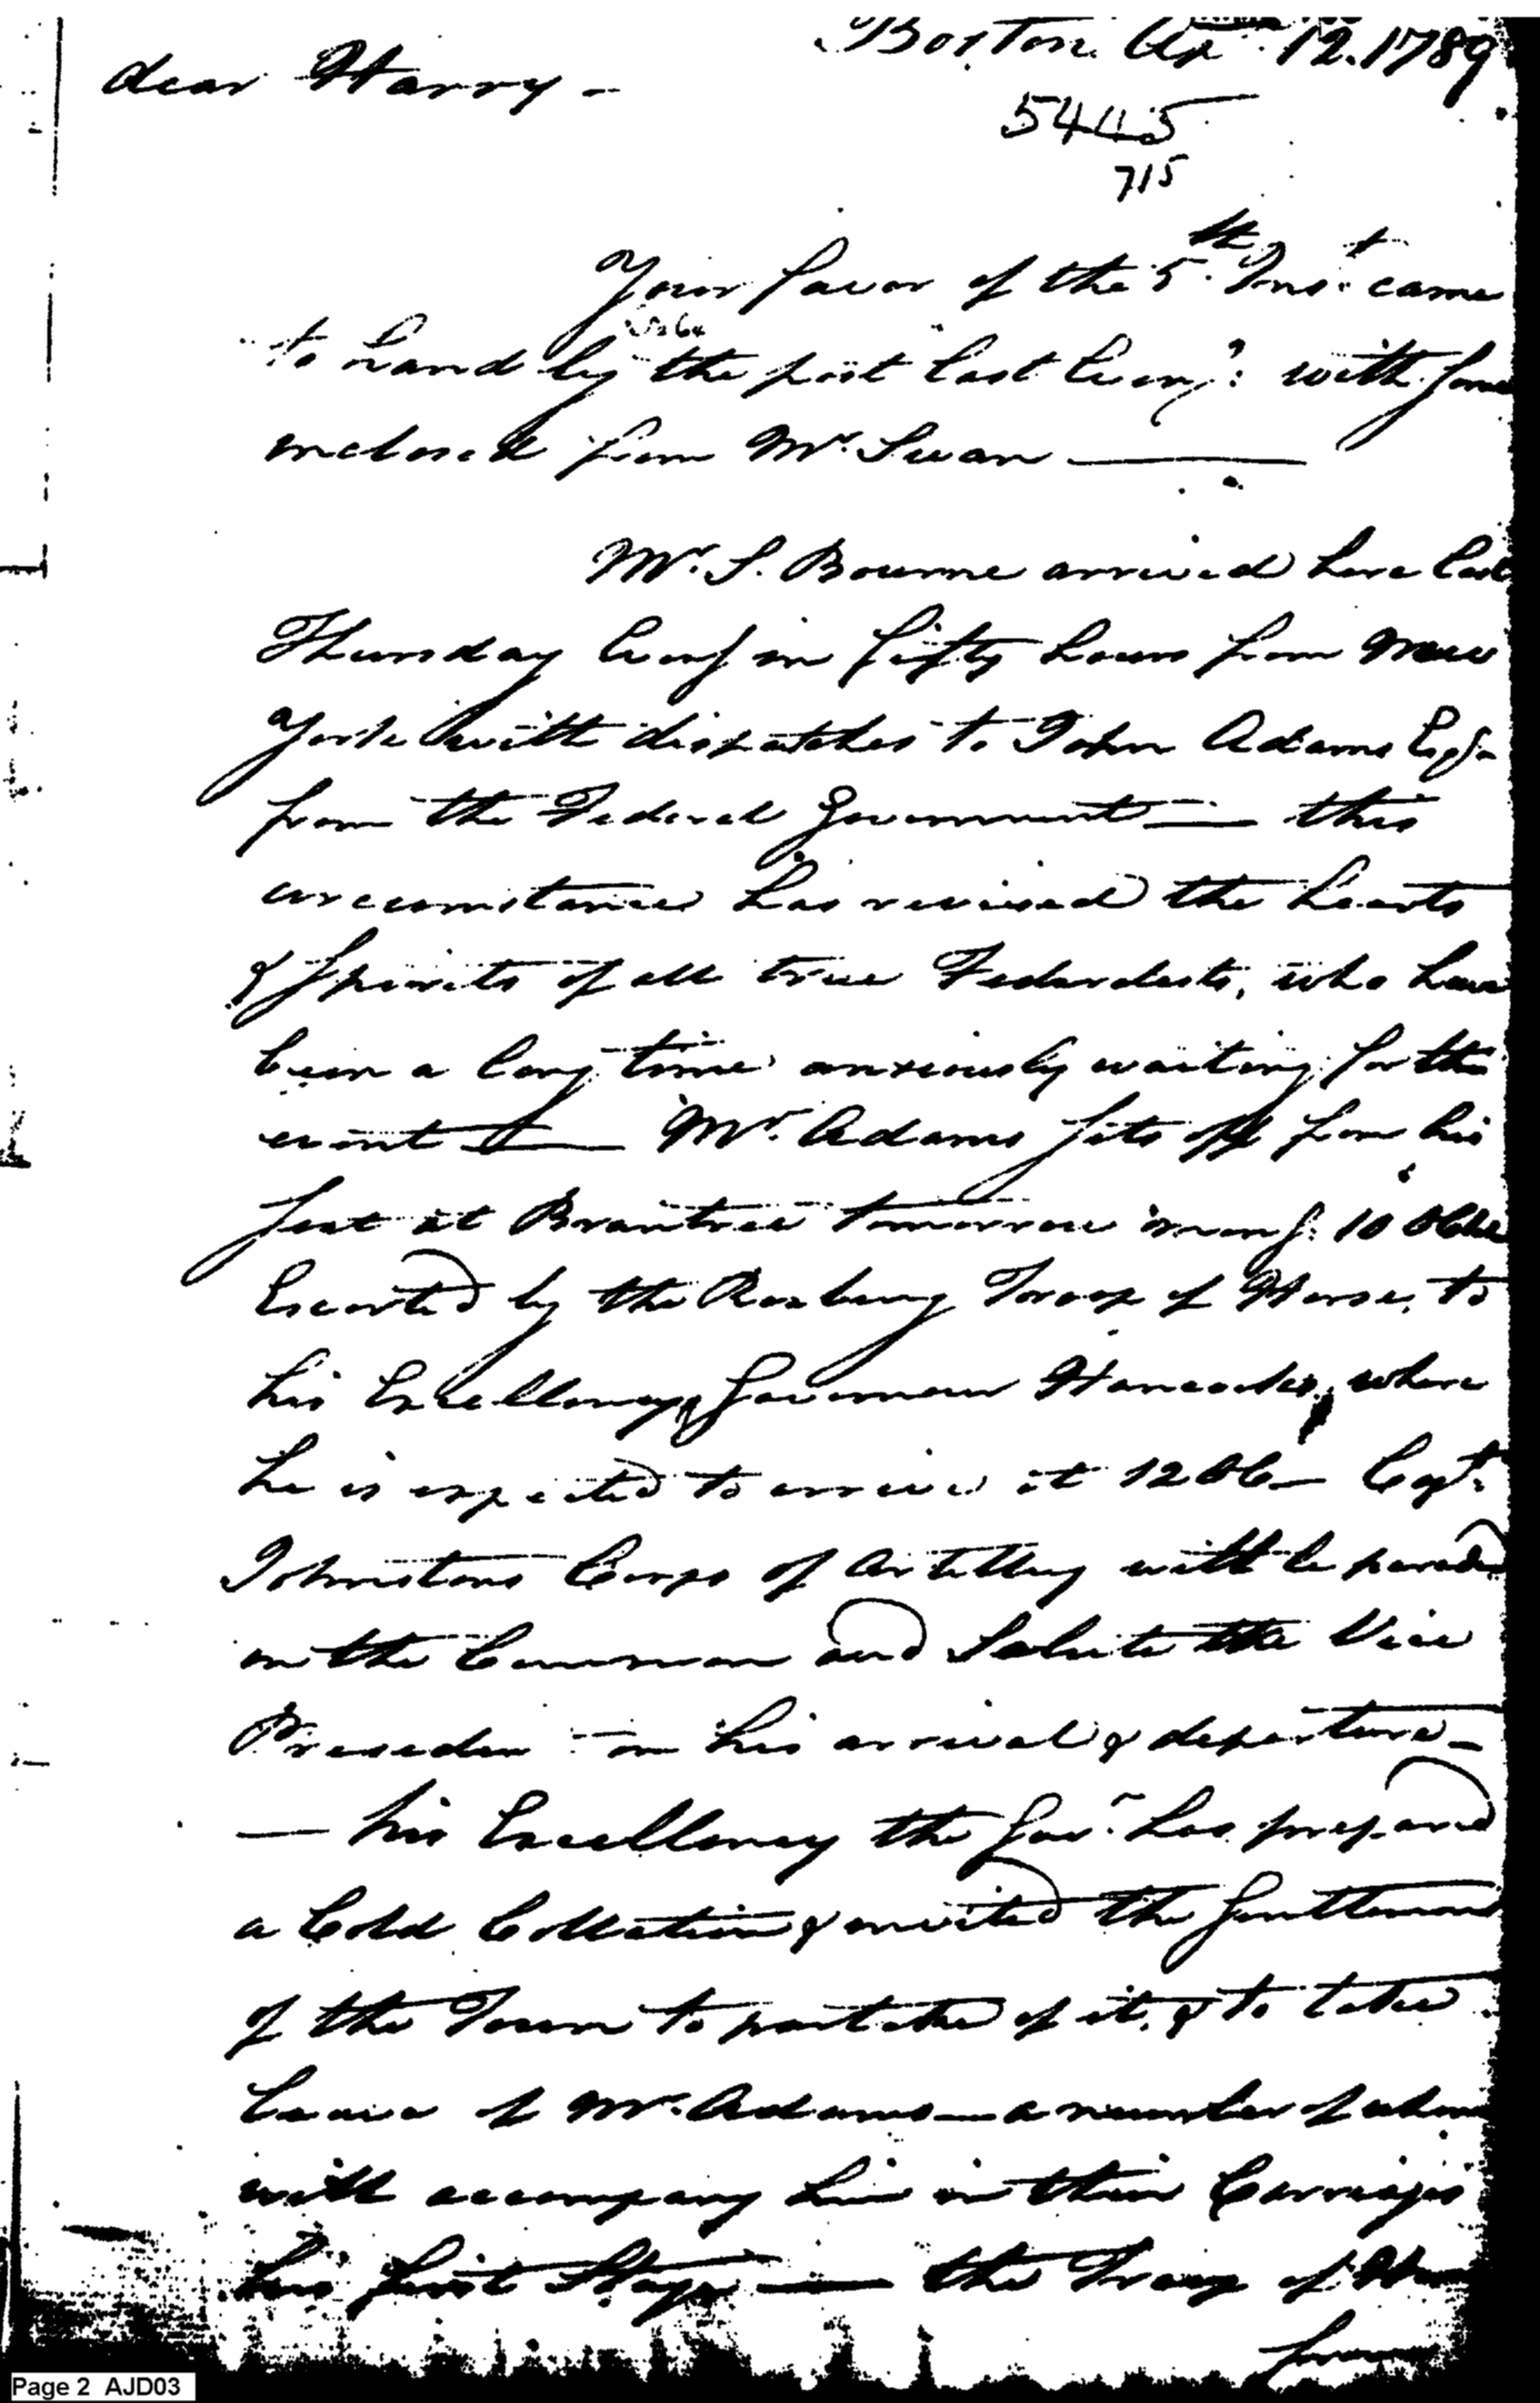 Boston Ap 12. 1789
dear Harry -
5445
715
Your favor of the 5th. Inst. came
to hand by the post last Eveng: with some
inclosed from Mr. Swan ———
Mr. S. Bourne arrived here last
Thursday Eveng in fifty hours from New
York with dispatches to John Adams Esqr
from the Federal Government — this
circumstance has revived the hearts
& spirits of all true Federalists, who have
been a long time anxiously waiting for the
event — Mr. Adams sets off from his
seat at Braintree tomorrow morng. 10 oClock
Escorted by the Roxbury Troop of Horse, to
his Excellency Governour Hancocks, where
he is expected to arrive at 12 oC— Capt.
Johnstons Corps of Artillery will be paraded
in the Common and Salute the Vice
Presiden - on his arrival & departure -
— his Excellency the Govr. has prepared
a Cold Collation & invited the Gentlemen
of the Town to partake of it, & to take
leave of Mr. Adams — a number of whom
will accompany him in their Carriages
his first Stage — the Troop of Horse
from
Page 2 AJD03